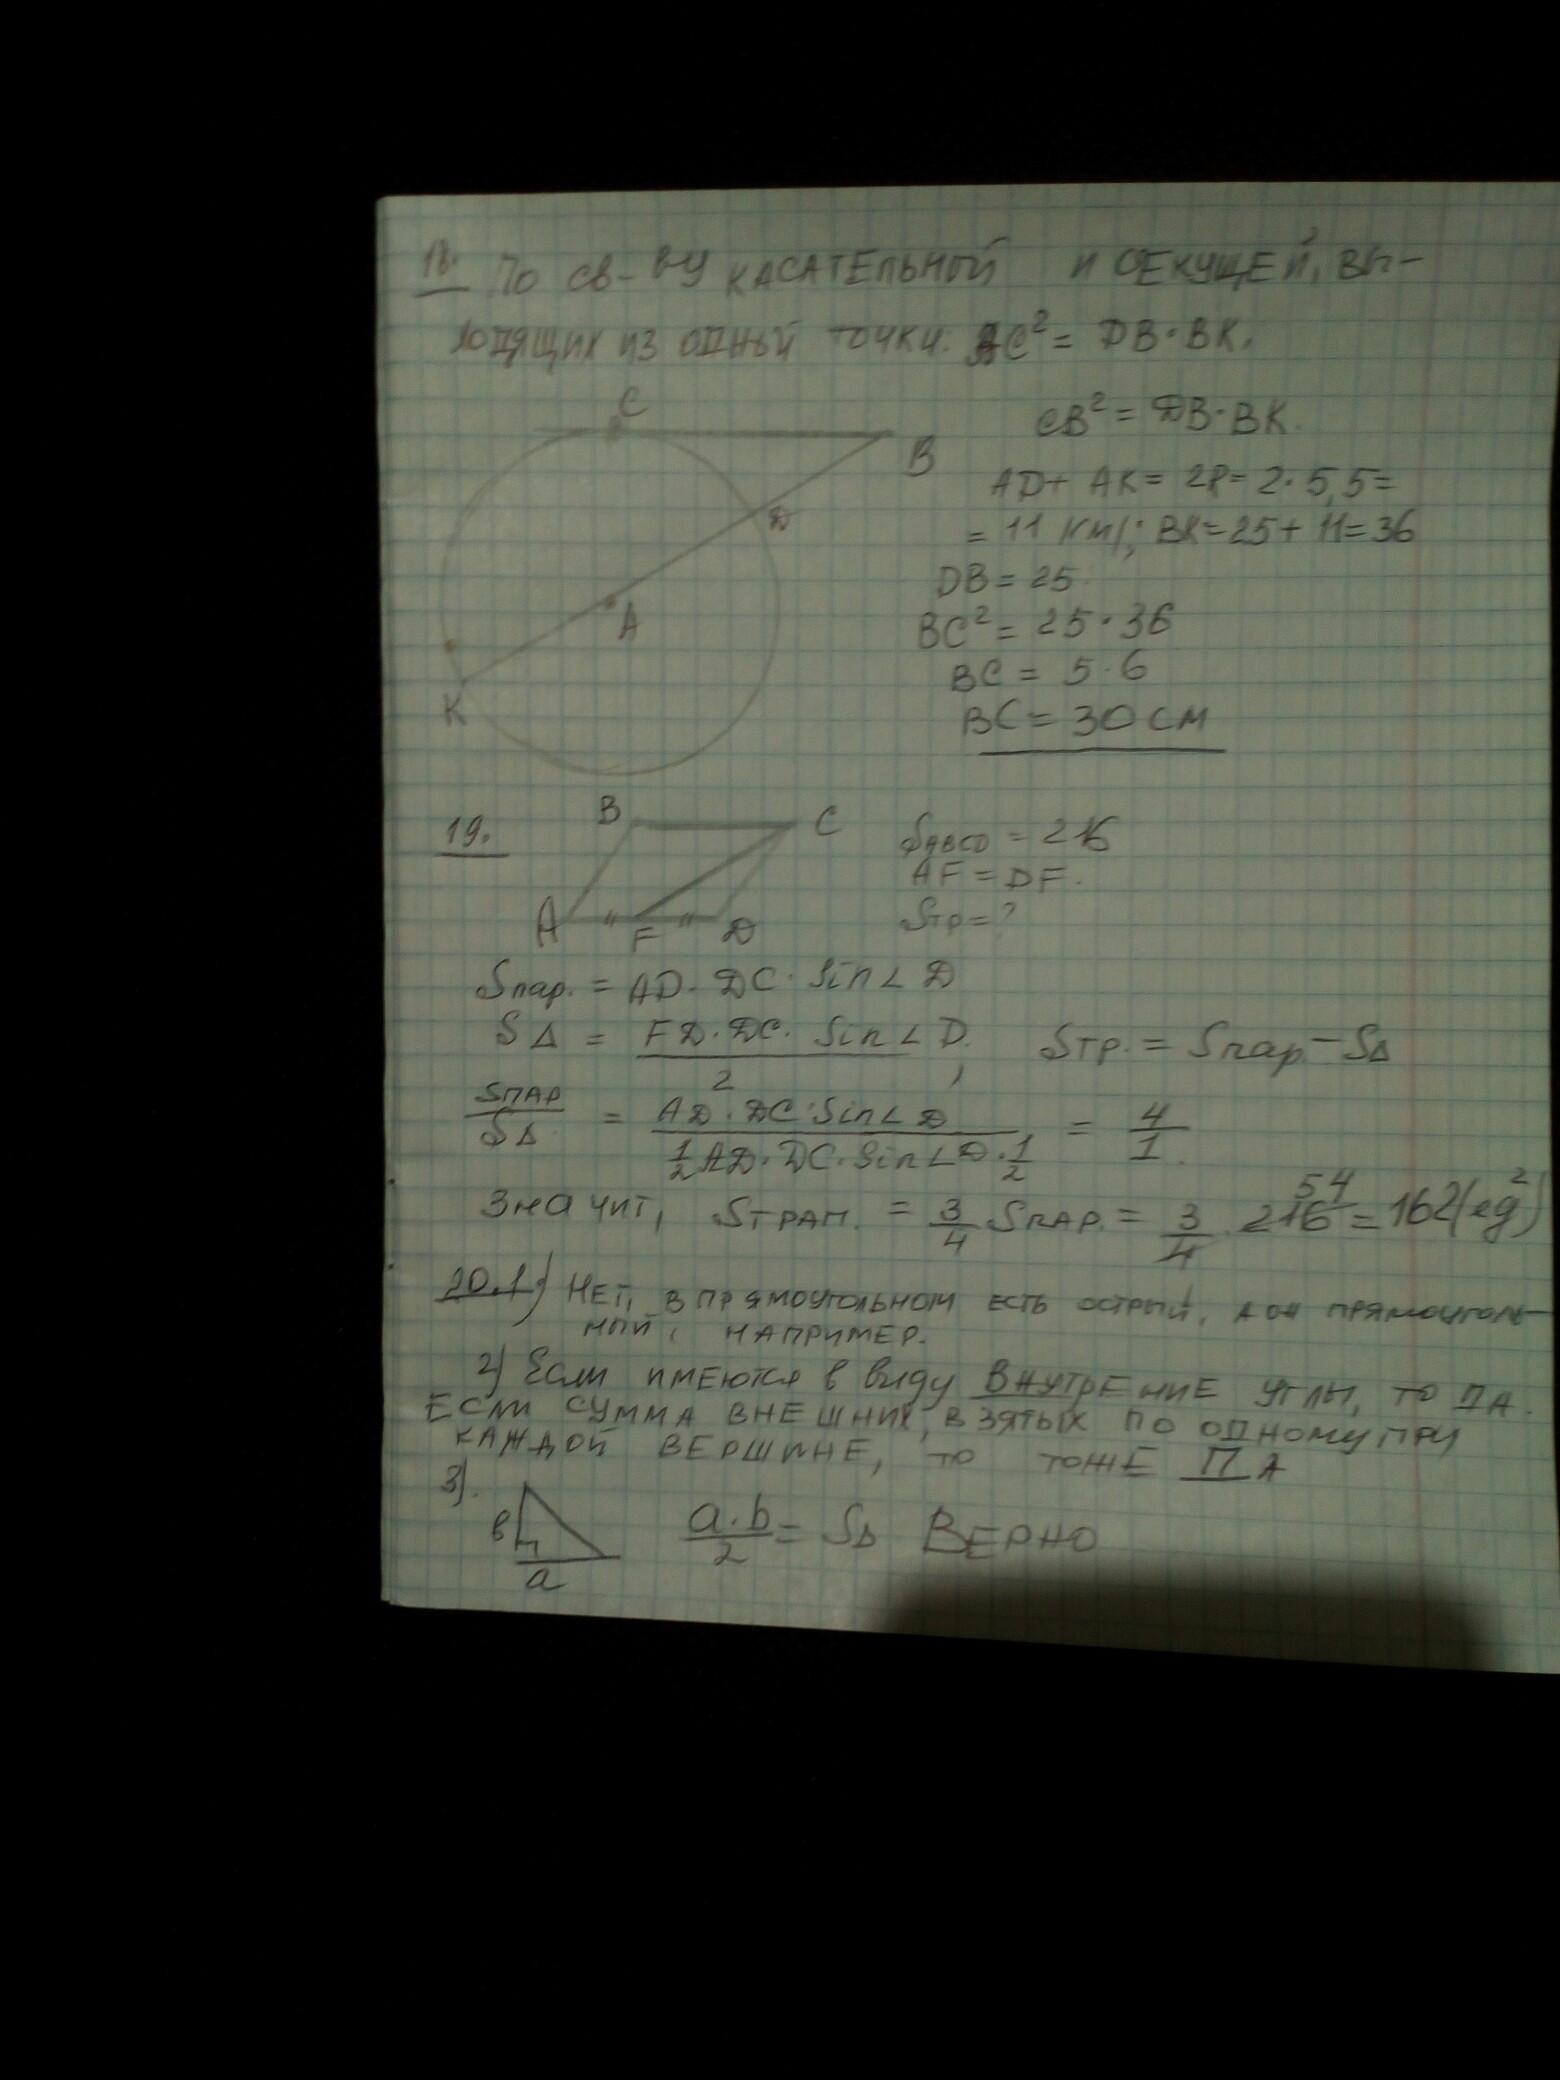 18. По св-ву КАСАТЕЛЬНОЙ И СЕКУЩЕЙ, ВЫ-
ХОДЯЩИХ ИЗ ОДНОЙ ТОЧКИ: C² = DB·BK.
C
B
D
A
K
CB² = DB·BK.
AD + AK = 2R = 2·5,5 =
= 11 КМ; BK = 25 + 11 = 36
DB = 25
BC² = 25·36
BC = 5·6
BC = 30 СМ
19.
B C
A F D
S ABCD = 216
AF = DF.
Sтр = ?
Sпар. = AD·DC·Sin∠D
S∆ = FD·DC·Sin∠D / 2, Sтр. = Sпар. - S∆
SПАР / S∆ = AD·DC·Sin∠D / ½AD·DC·Sin∠D·½ = 4/1
Значит, SТРАП. = 3/4 SПАР. = 3/4 · 216 = 162 (ед²)
54
20.1) НЕТ, В ПРЯМОУГОЛЬНОМ ЕСТЬ ОСТРЫЙ, А ОН ПРЯМОУГОЛЬ-
НЫЙ, НАПРИМЕР.
2) Если ИМЕЮТСЯ в виду ВНУТРЕННИЕ УГЛЫ, ТО ДА.
ЕСЛИ СУММА ВНЕШНИХ, ВЗЯТЫХ ПО ОДНОМУ ПРИ
КАЖДОЙ ВЕРШИНЕ, ТО ТОЖЕ ДА
3).
в
a
a·b / 2 = S∆ ВЕРНО